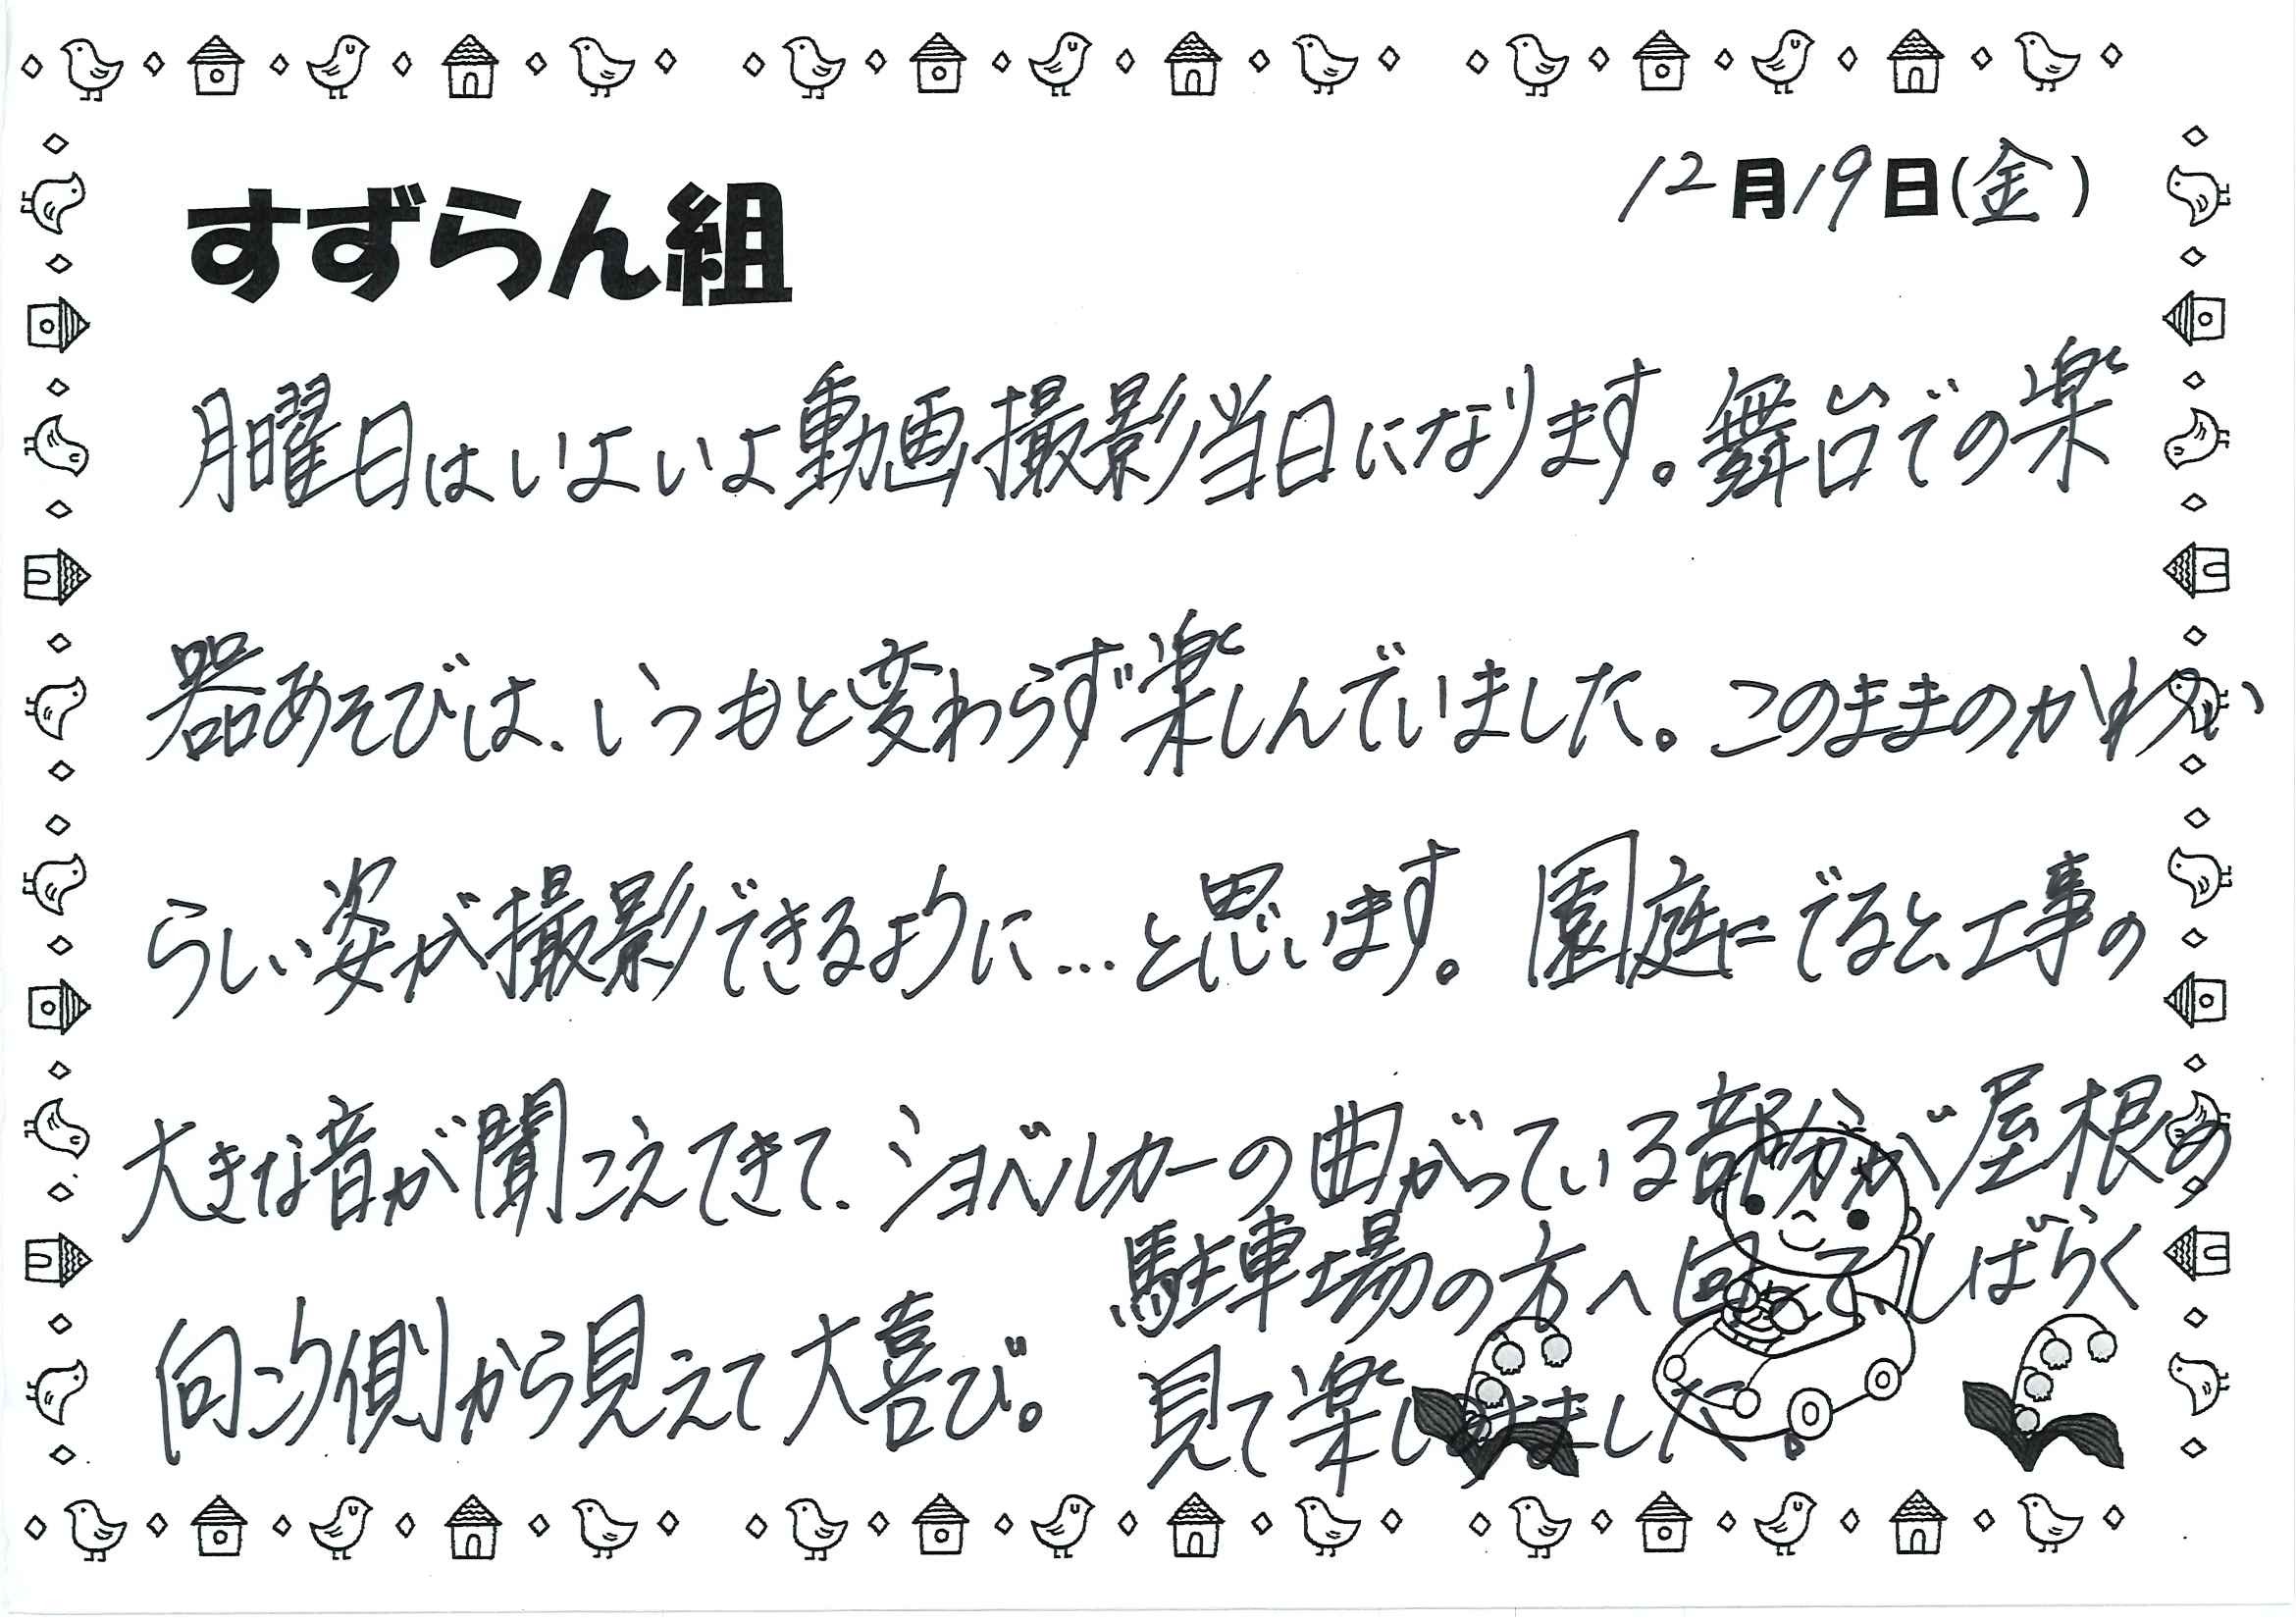 すずらん組
12月19日(金)
月曜日はいよいよ動画撮影当日になります。舞台での楽
器あそびは、いつもと変わらず楽しんでいました。このままのかわい
らしい姿が撮影できるように…と思います。園庭にでると、工事の
大きな音が聞こえてきて、ショベルカーの曲がっている部分が屋根の
向こう側から見えて大喜び。
駐車場の方へ回って、しばらく
見て楽しみました。